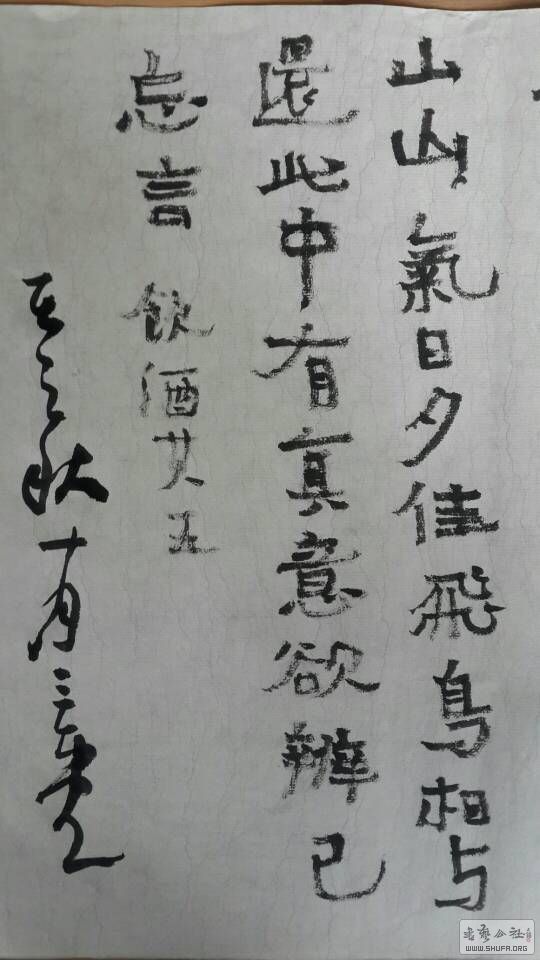 山山氣日夕佳飛鳥相与
還此中有真意欲辨已
忘言
飲酒其五
秋十月
書藝公社
WWW.SHUFA.ORG